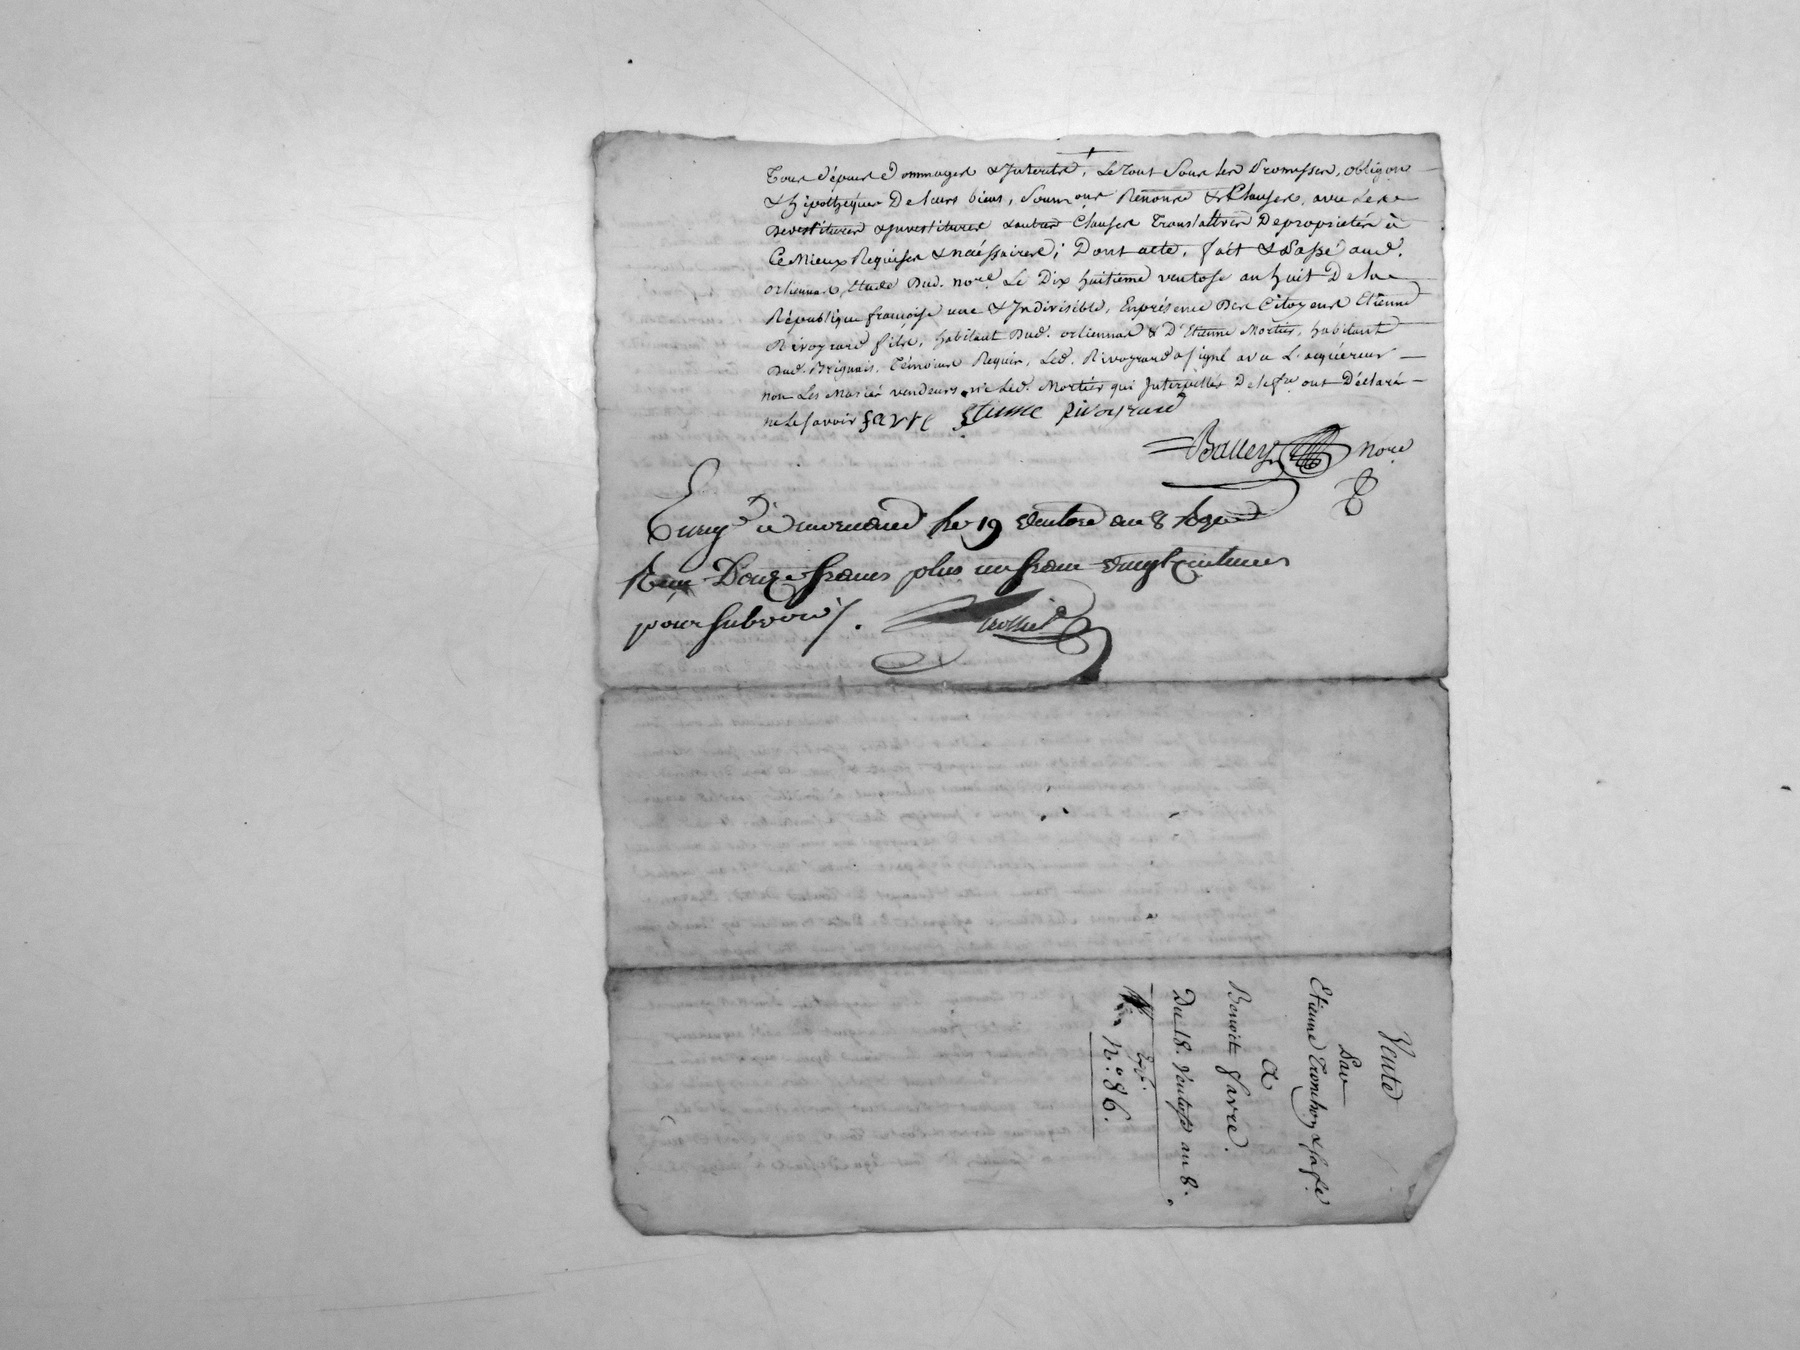 Tous dépens dommages & Interets, Le tout sous les Promesses, obligõn
& hipothéques De leurs biens, Soumõns Renonce & Clauses, avec Les
Devestitures & Investitures & autres Clauses Translatives De proprietés à
Ce Mieux Requises & nécéssaires; Dont acte, fait & Passé aud.
orliennas, étude Dud. nore. Le Dix huitième ventose an huit De la
République françoise une & Indivisible, En présence Des Citoyens Etienne
Rivoyrard fils, habitant Dud. orliennas & D'Etienne Mortier, habitant
Dud. Brignais, Témoins Requis, Led. Rivoyrard a signé avec L'acquéreur
non Les Mariés vendeurs ni Led. Mortier qui Interpellés De le fre ont Déclaré
ne Le savoir favre Etienne Rivoyrard
Balley nore
Enrgé à le 19 ventose an 8
Reçu Douze francs plus un franc vingt centimes
pour subvon.
Vente
Par
Etienne & sa fe.
a
Benoit favre.
Du 18. Ventose an 8.
Exp.
N.º 86.